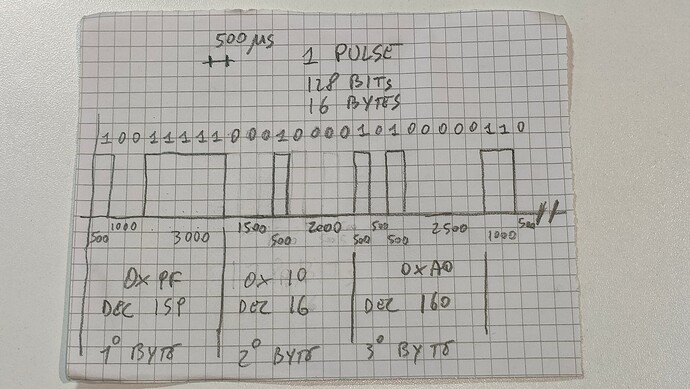 500 µs
1 PULSE
128 BITs
16 BYTES
1 0 0 1 1 1 1 1 0 0 0 1 0 0 0 0 1 0 1 0 0 0 0 0 1 1 0
500 1000 3000 1500 500 2000 500 500 500 2500 1000 500
0X9F 0X 10 0XA0
DEC 159 DEC 16 DEC 160
1° BYTE 2° BYTE 3° BYTE